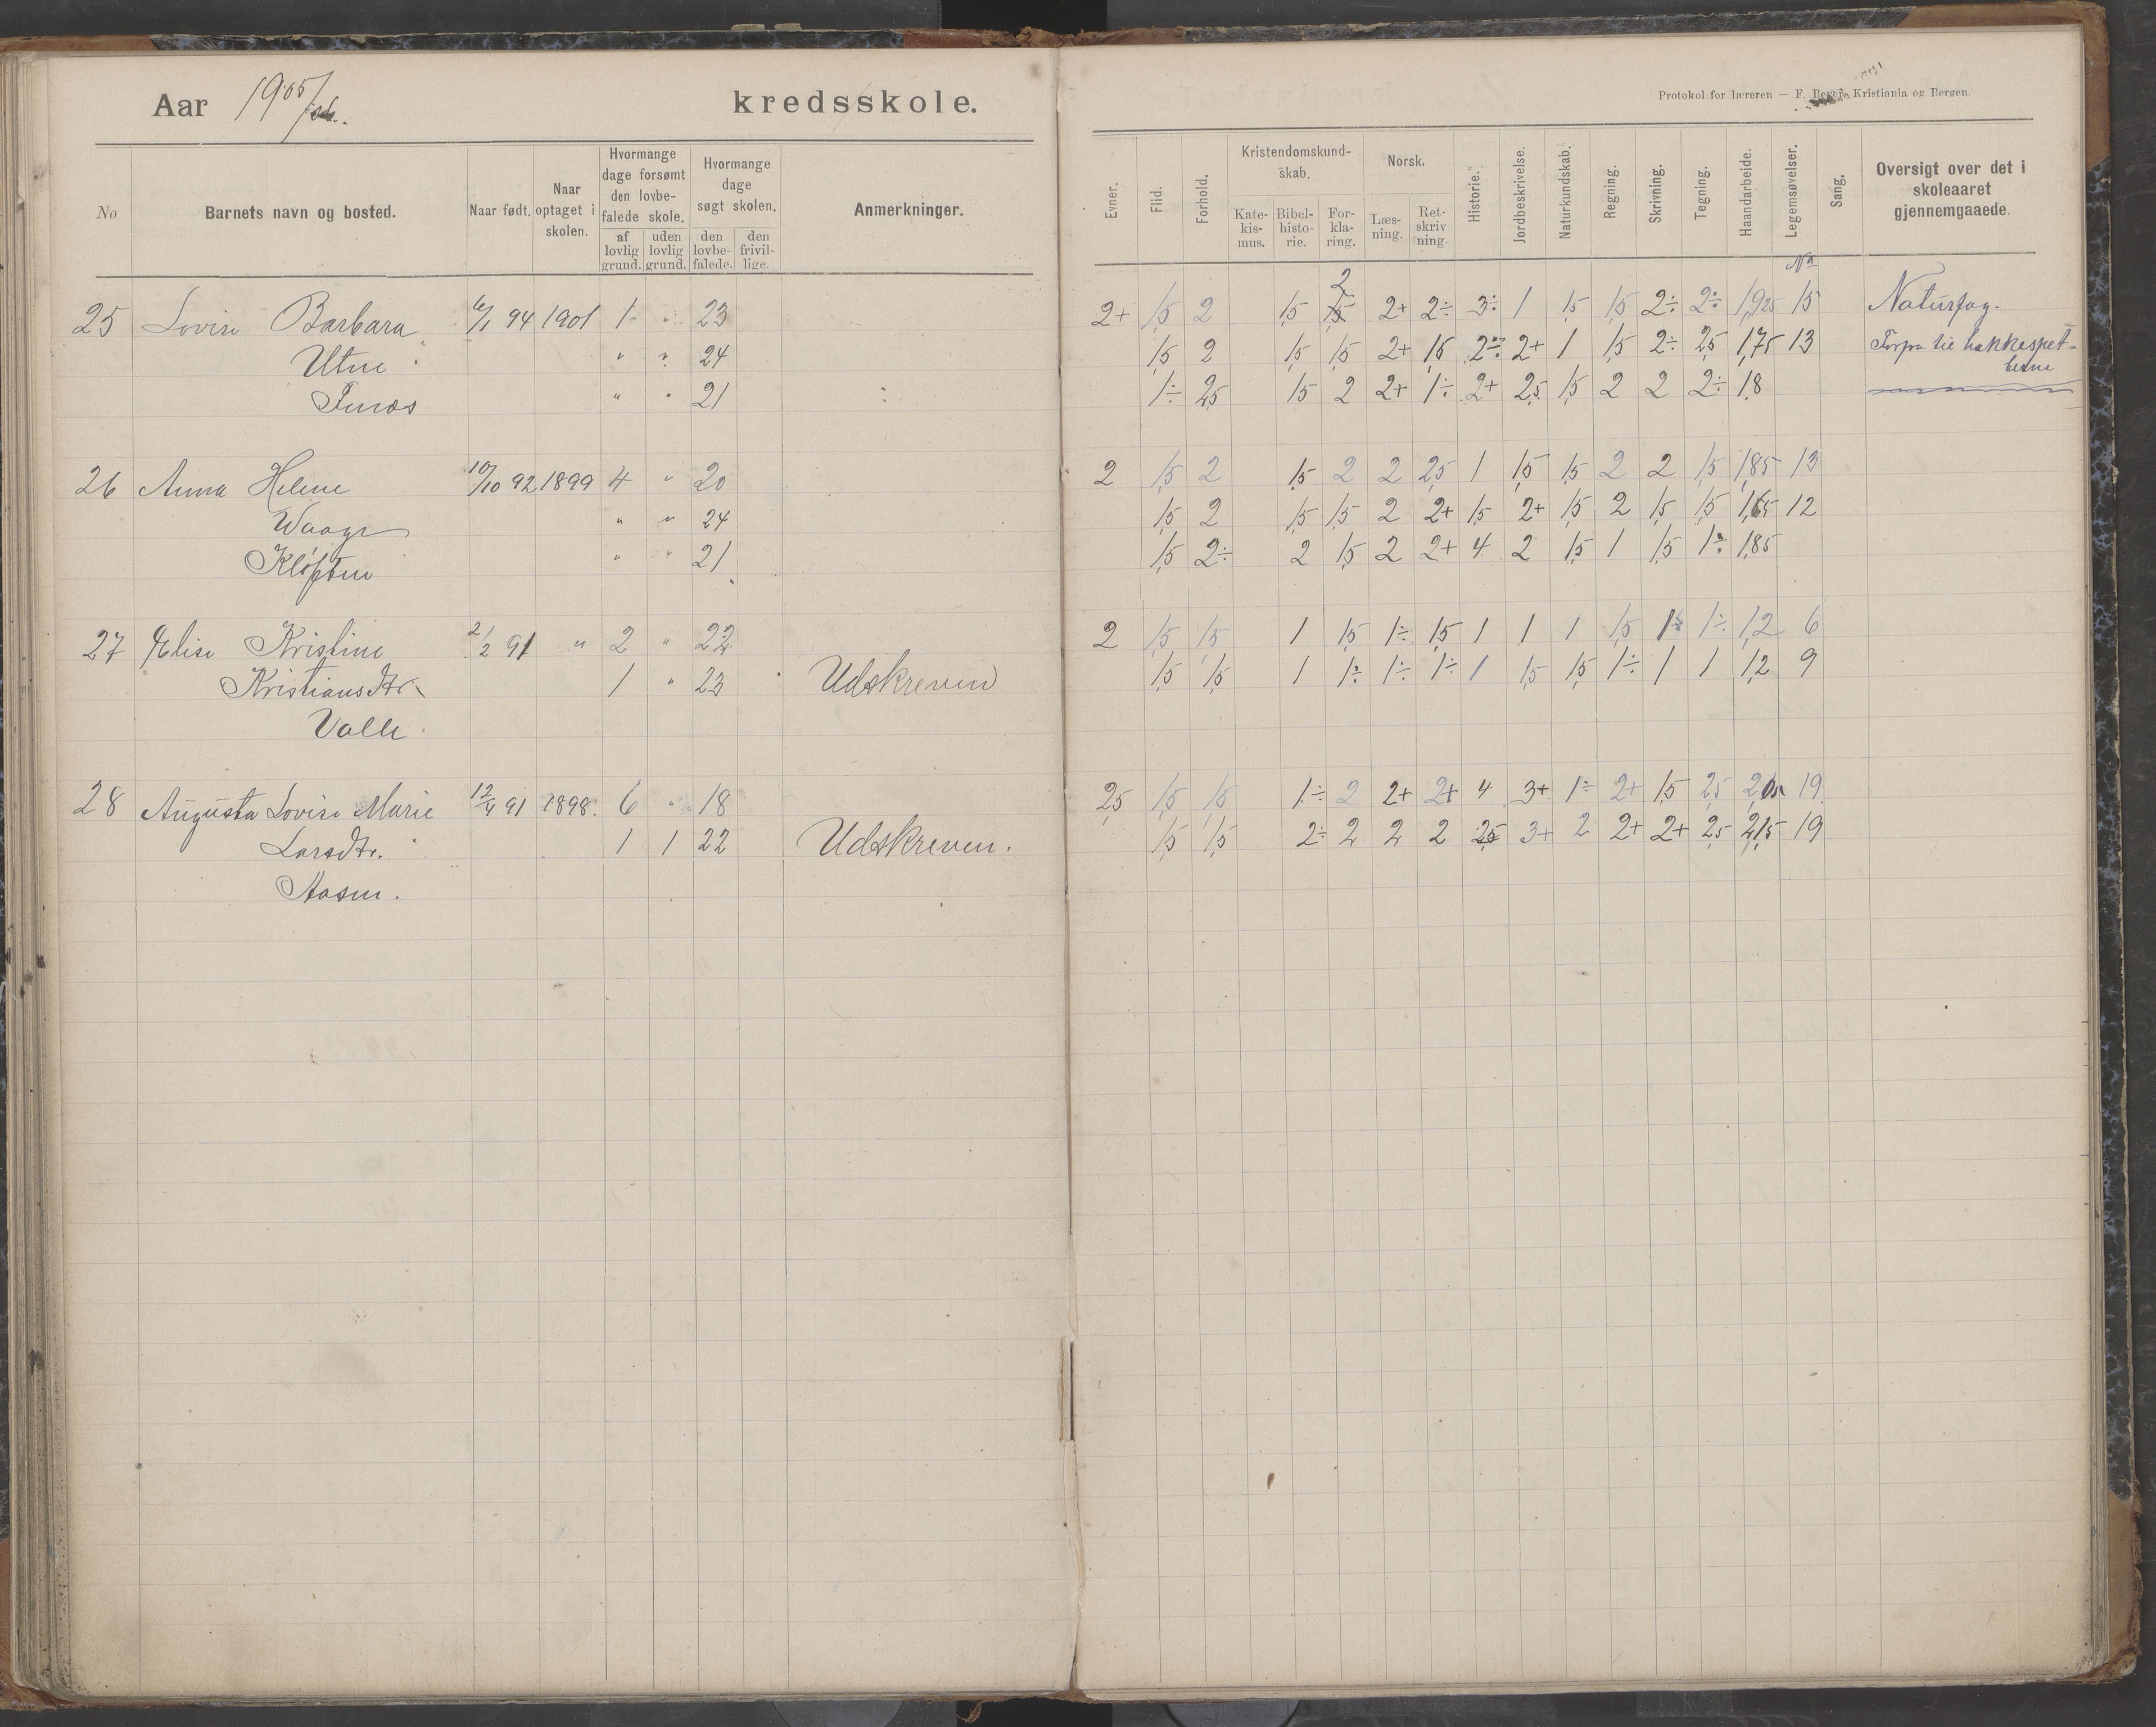 Aar 1905/06. kredsskole.
No
Barnets navn og bosted.
Naar født.
Naar optaget i skolen.
Hvormange dage forsømt den lovbefalede skole.
af lovlig grund.
uden lovlig grund.
Hvormange dage søgt skolen.
den lovbefalede.
den frivillige.
Anmerkninger.
25 Lovise Barbara 6/1 94 1901 1 " 23
Utne " " 24
" " 21
26 Anna Helene 10/10 92 1899 4 " 20
Waage " " 24
Kløften " " 21
27 Elise Kristine 2/2 91 " 2 " 22
Kristiansdtr. 1 " 23 Udskreven
Valle
28 Augusta Lovise Marie 12/4 91 1898. 6 " 18
Larsdtr. 1 1 22 Udskreven.
Aasen.
Protokol for læreren — F. Beyer, Kristiania og Bergen.
Evner.
Flid.
Forhold.
Kristendomskundskab.
Katekismus.
Bibelhistorie.
Forklaring.
Norsk.
Læsning.
Retskrivning.
Historie.
Jordbeskrivelse.
Naturkundskab.
Regning.
Skrivning.
Tegning.
Haandarbeide.
Legemsøvelser.
Sang.
Oversigt over det i skoleaaret gjennemgaaede.
No
2
2+ 1,5 2 1,5 1,5 2+ 2÷ 3÷ 1 1,5 1,5 2÷ 2÷ 1,925 15 Naturfag.
1,5 2 1,5 1,5 2+ 1,5 2÷ 2+ 1 1,5 2÷ 2,5 1,75 13 til hakkespet-
tene
1÷ 2,5 1,5 2 2+ 1÷ 2+ 2,5 1,5 2 2 2÷ 1,8
2 1,5 2 1,5 2 2 2,5 1 1,5 1,5 2 2 1,5 1,85 13
1,5 2 1,5 1,5 2 2+ 1,5 2+ 1,5 2 1,5 1,5 1,65 12
1,5 2÷ 2 1,5 2 2+ 4 2 1,5 1 1,5 1÷ 1,85
2 1,5 1,5 1 1,5 1÷ 1,5 1 1 1 1,5 1÷ 1÷ 1,2 6
1,5 1,5 1 1÷ 1÷ 1÷ 1 1,5 1,5 1÷ 1 1 1,2 9
2,5 1,5 1,5 1÷ 2 2+ 2+ 4 3+ 1÷ 2+ 1,5 2,5 2,05 19
1,5 1,5 2÷ 2 2 2 2,5 3+ 2 2+ 2+ 2,5 2,15 19